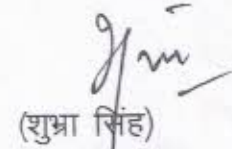 (शुभ्रा सिंह)